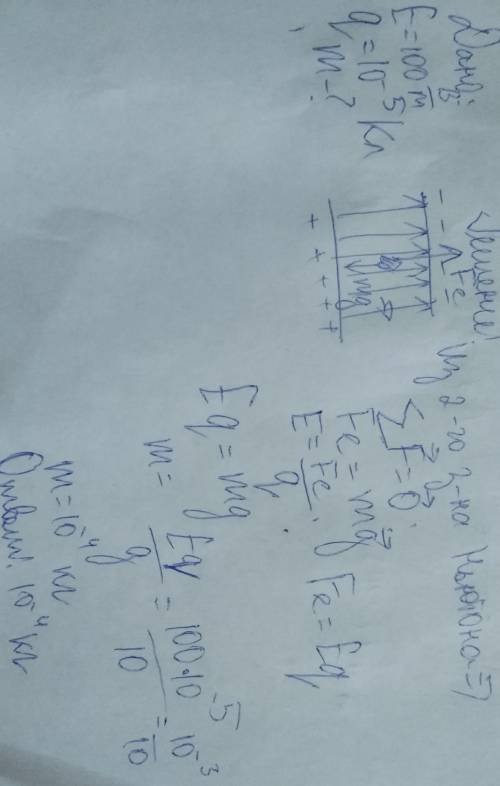 Дано:
E=100 m/в
q=10⁻⁵ Кл
m-?
Решение:
- - Fe
mg
+ + + + +
Из 2-го З-на Ньютона =>
∑F⃗=0⃗;
Fe=mg
E=Fe/q; Fe=Eq
Eq=mg
m= Eq/g = 100·10⁻⁵/10 = 10⁻³/10
m=10⁻⁴ кг
Ответ: 10⁻⁴ кг